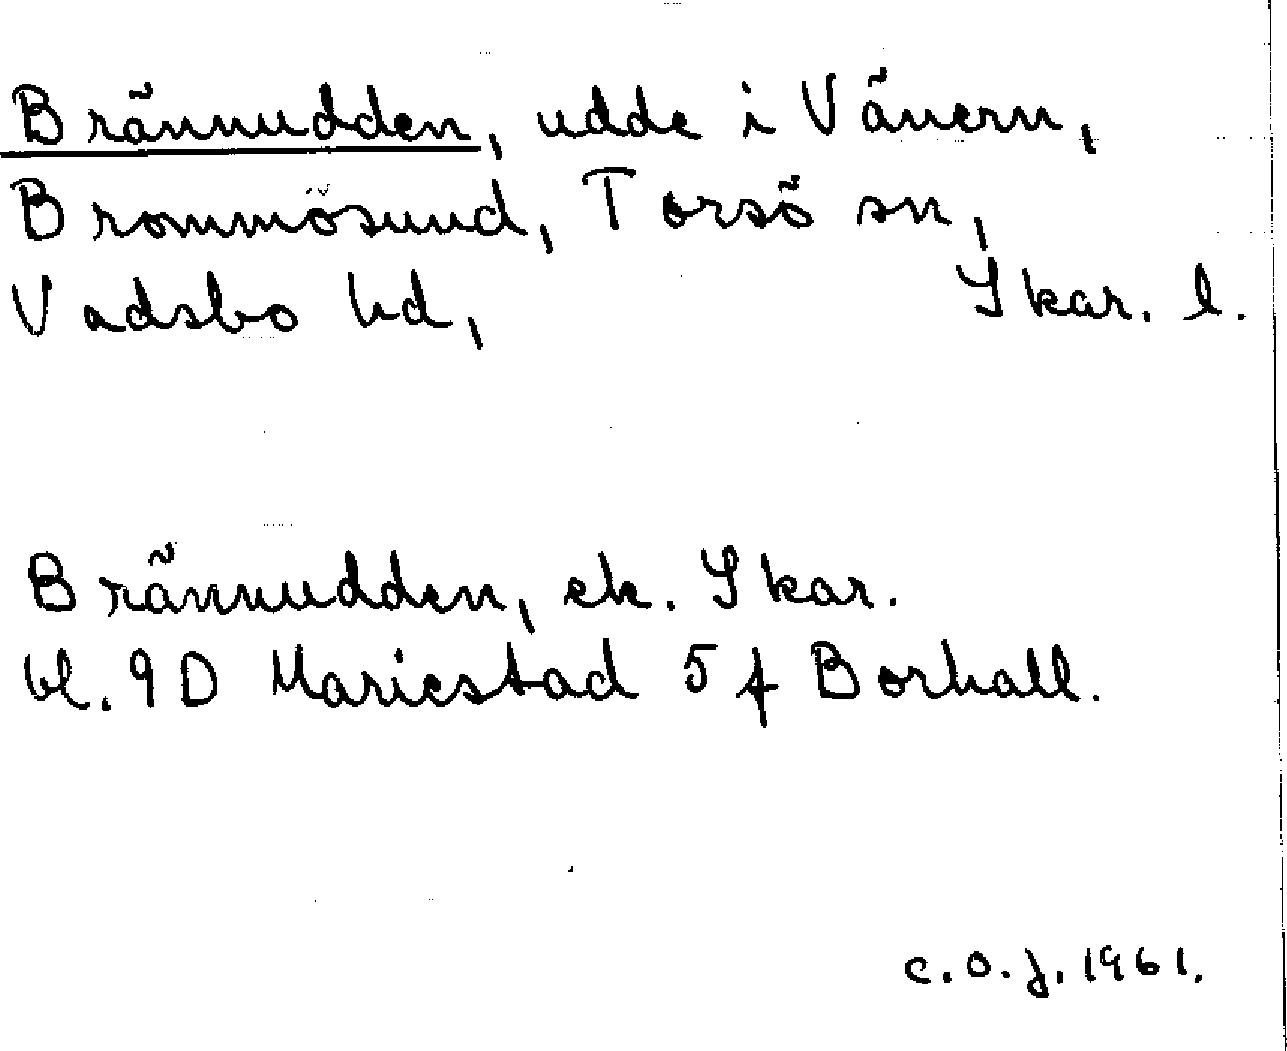 Brännudden, udde i Vänern,
Brommösund, Torsö sn,
Vadsbo hd, Skar. l.
Brännudden, ek. Skar.
bl. 9D Mariestad 5 f Borhall.
C.O.J. 1961.